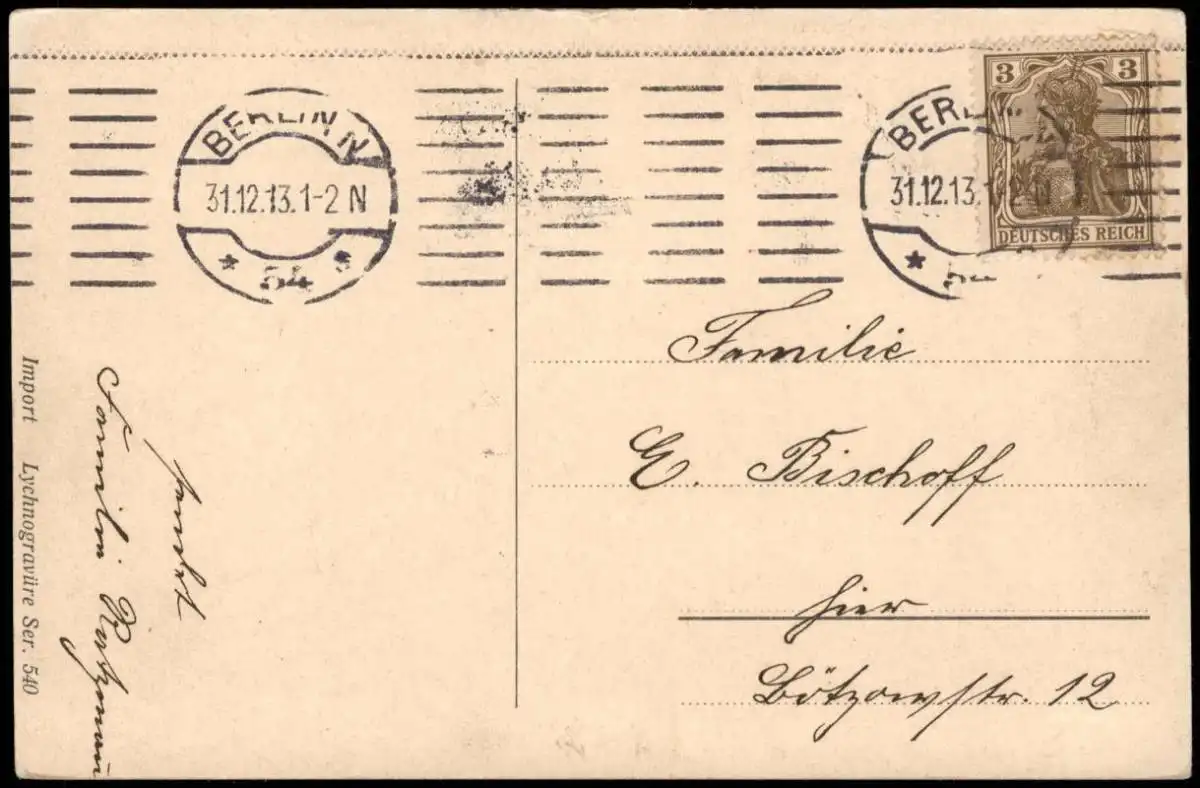 BERLIN N
31.12.13.1-2 N
* 54 *
31.12.13.1-2 N
3 3
DEUTSCHES REICH
Familie
E. Bischoff
hier
Bötzowstr. 12
sendet
Familie
Import Lychnogravüre Ser. 540